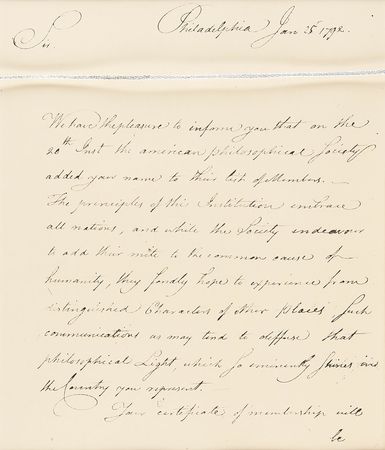 Philadelphia Jan 25th 1792.
Sir
We have the pleasure to inform you that on the
20th Inst the american philosophical Society
added your name to their list of Members. —
The principles of this Institution embrace
all nations, and while the Society endeavour
to add their mite to the common cause of
humanity, they fondly hope to experience from
distinguished Characters of other places such
communications as may tend to diffuse that
philosophical Light, which so eminently shines in
the Country you represent. —
Your certificate of membership will
be